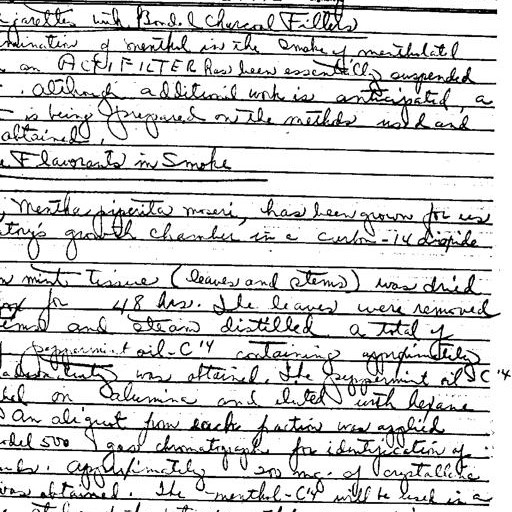 garettes with Bonded Charcoal Filters
mination of menthol in the smoke of mentholated
on an ACTIFILTER has been essentially suspended
. Although additional work is anticipated, a
t is being prepared on the methods used and
obtained.
e Flavorants in Smoke
, Mentha piperita moseri, has been grown for us
tory's growth chamber in a carbon-14 dioxide
n mint tissue (leaves and stems) was dried
for 48 hrs. The leaves were removed
tems and steam distilled a total of
peppermint oil-C14 containing approximately
was obtained. The peppermint oil C14
on alumina and eluted with hexane
An aliquot from each fraction was applied
odel 500 gas chromatograph for identification of
nds. Approximately 200 mg. of crystalline
was obtained. The menthol-C14 will be used in a